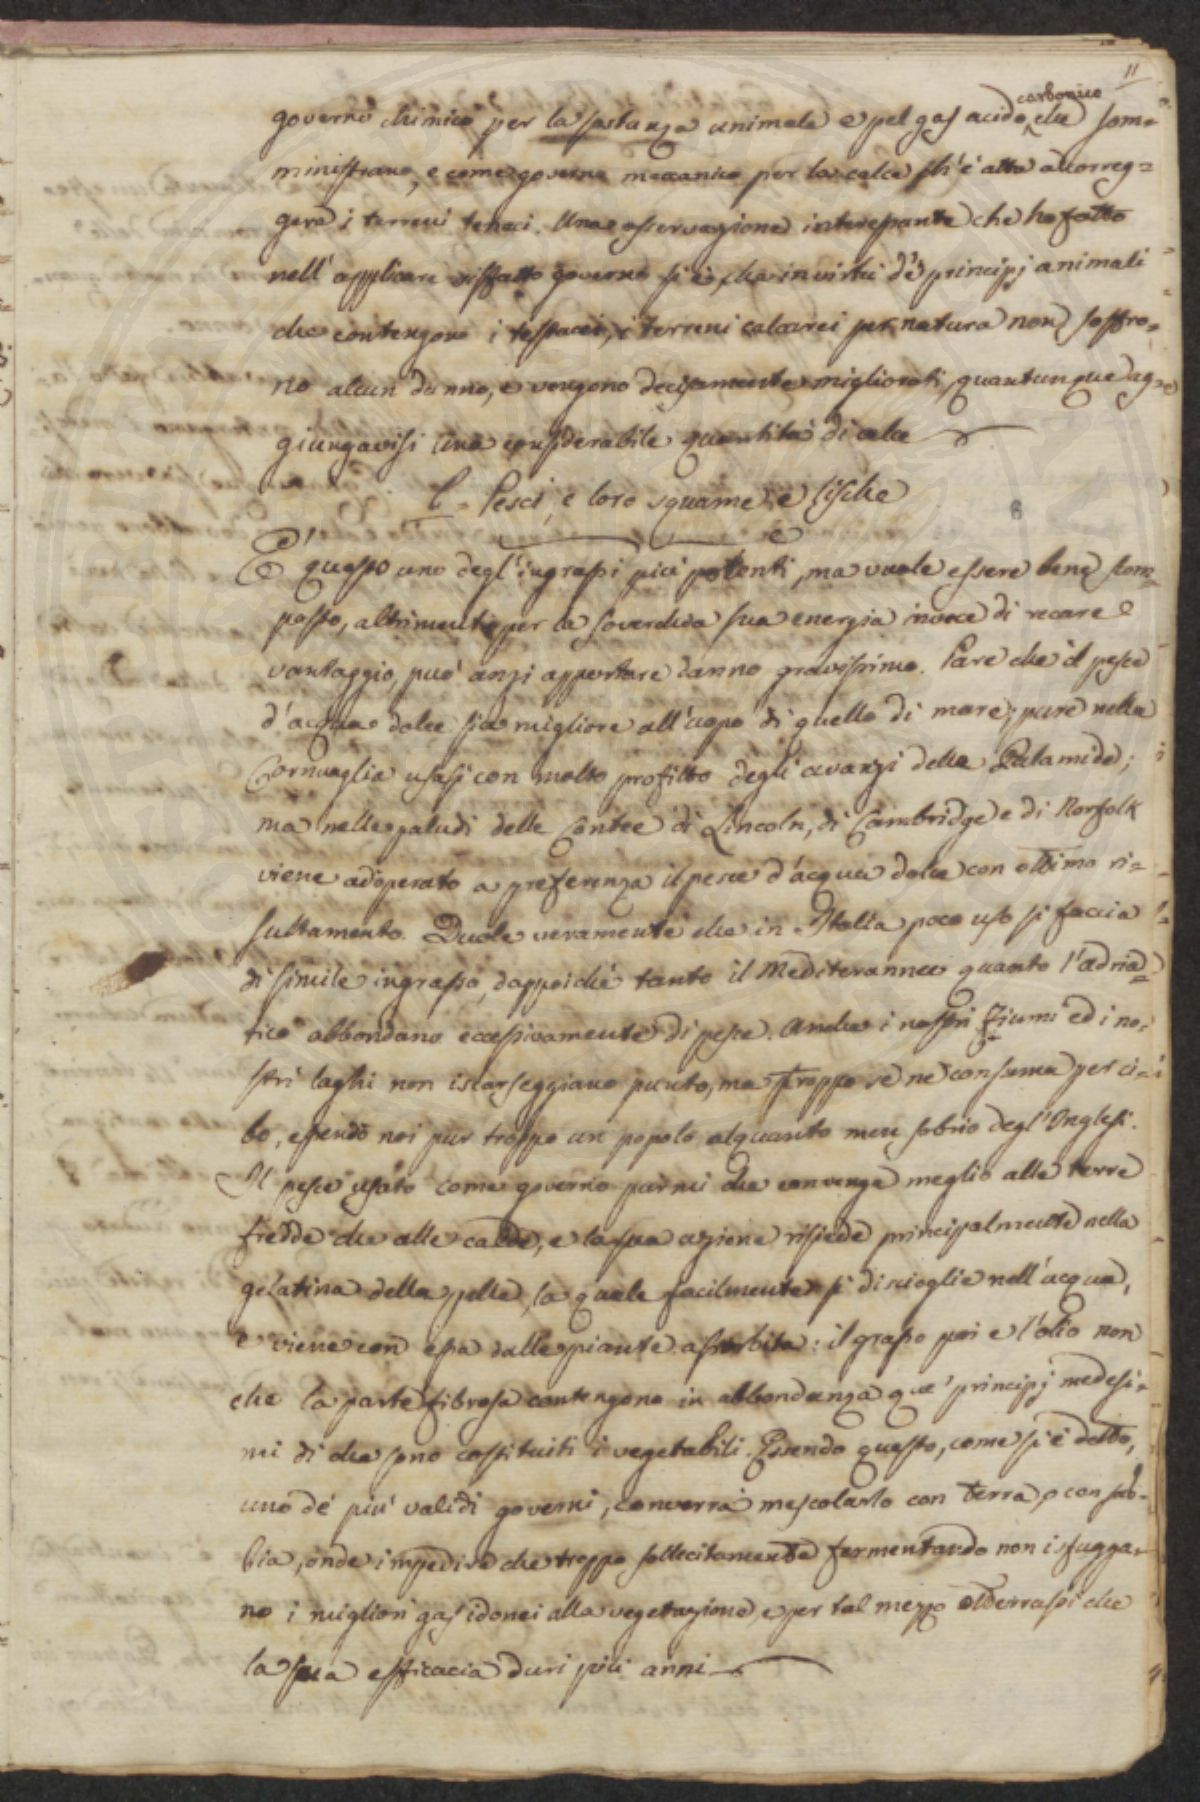 11
governo chimico per la sostanza animale e pel gas acido carbonico che som=
ministrano, e come governo meccanico per la calce ch'è atta a correg=
gere i terreni tenaci. Una osservazione interessante che ho fatto
nell'applicare siffatto governo si è, che in virtù de' principj animali
che contengono i testacei, i terreni calcarei per natura non soffro=
no alcun danno, e vengono decisamente migliorati, quantunque ag=
giungavisi una considerabile quantità di calce
C = Pesci, e loro squame, e lische
È questo uno degl'ingrassi più potenti, ma vuole essere bene scom=
posto, altrimenti per la soverchia sua energia invece di recare
vantaggio, può anzi apportare danno gravissimo. Pare che il pesce
d'acqua dolce sia migliore all'uopo di quello di mare; pure nella
Cornvaglia usasi con molto profitto degli avanzi della Palamide;
ma nelle paludi delle Contee di Lincoln, di Cambridge e di Norfolk
viene adoperato a preferenza il pesce d'acqua dolce con ottimo ri=
sultamento. Duole veramente che in Italia poco uso si faccia
di simile ingrasso, dappoichè tanto il Mediterranneo quanto l'adria=
tico abbondano eccessivamente di pesce. Anche i nostri fiumi ed i no=
stri laghi non iscarseggiano punto, ma troppo se ne consuma per ci=
bo, essendo noi pur troppo un popolo alquanto men sobrio degl'Inglesi.
Il pesce usato come governo parmi che convenga meglio alle terre
fredde che alle calde, e la sua azione risiede principalmente nella
gelatina della pelle, la quale facilmente si discioglie nell'acqua,
e viene con essa dalle piante assorbita: il grasso poi e l'olio non
che la parte fibrosa contengono in abbondanza que' principj medesi=
mi di che sono costituiti i vegetabili. Essendo questo, come si è detto,
uno de' più validi governi, converrà mescolarlo con terra o con sab=
bia, onde impedire che troppo sollecitamente fermentando non isfugga=
no i migliori gas idonei alla vegetazione, e per tal mezzo otterrassi che
la sua efficacia duri più anni